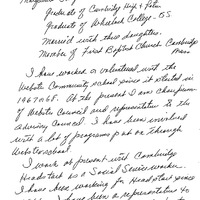 Graduate of Cambridge High & Latin
Graduate of Wheelock College - BS
Married with three daughters.
Member of First Baptist Church Cambridge
Mass
I have worked a volunteer with the
Webster Community school since it started in
1967 & 68. At the present I am chairperson
of Webster Council and representative to the
advisory Council. I have been involved
with a lot of programs put on through
Webster school.
I work at present with Cambridge
Headstart as a Social Service worker.
I have been working for Headstart since
I have been a representative to